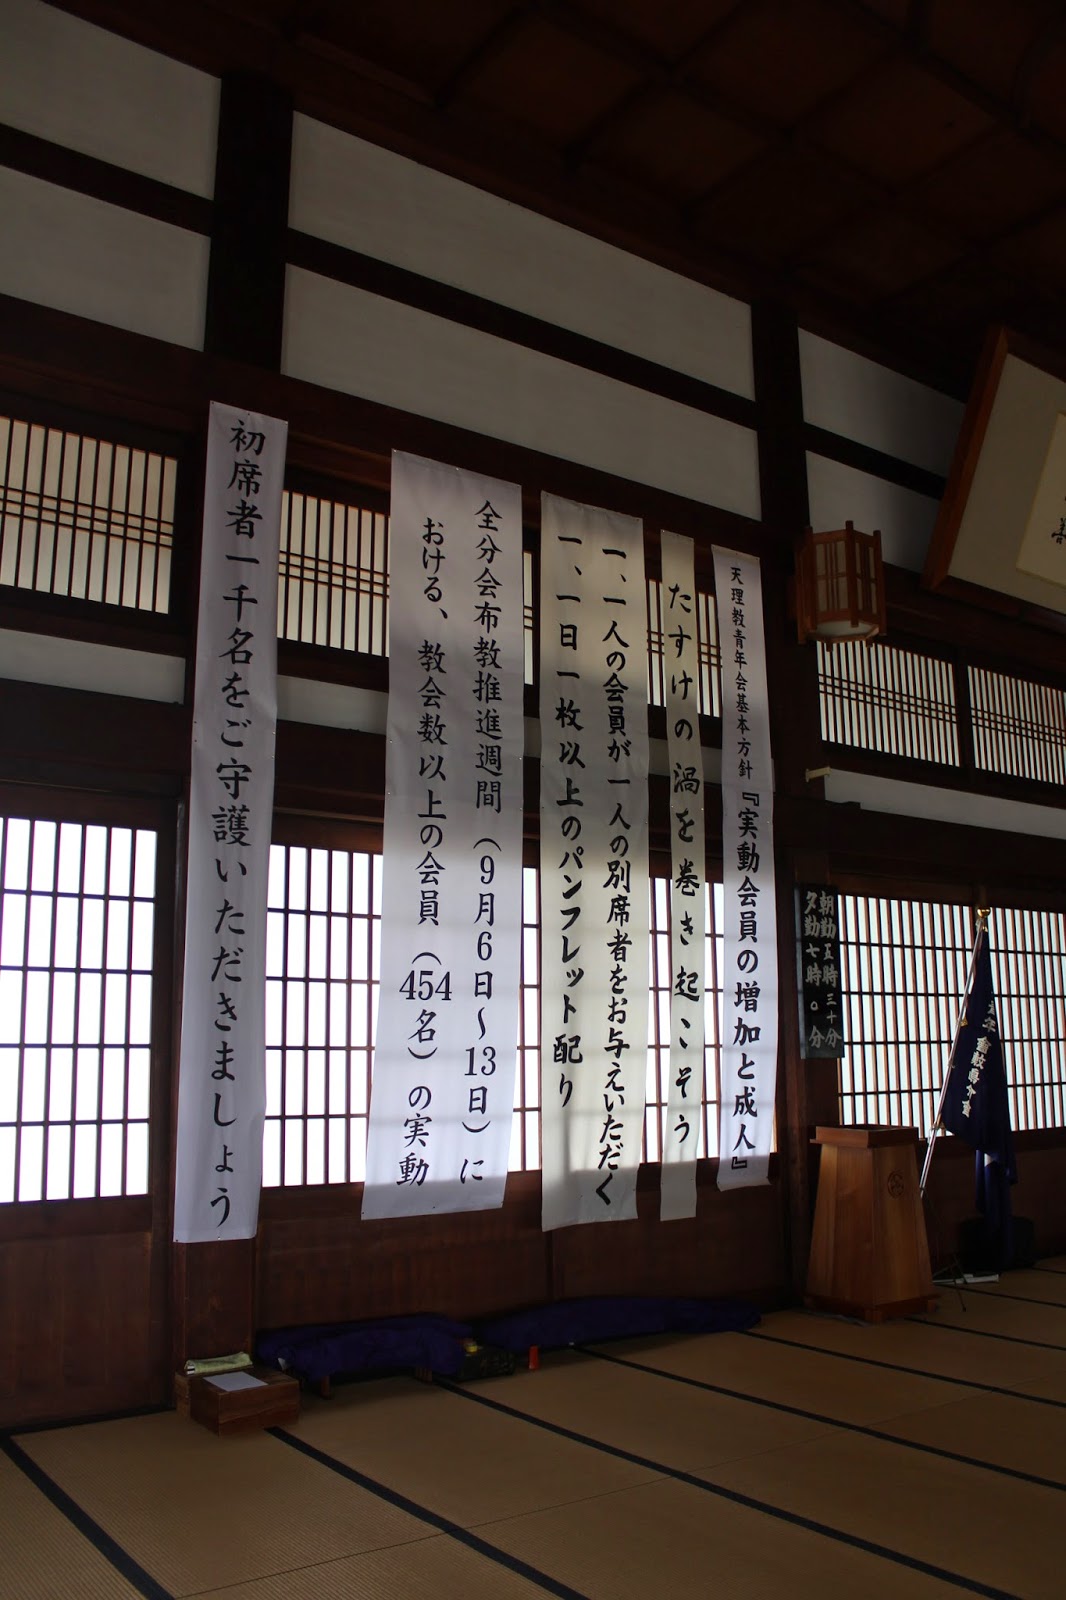 天理教青年会基本方針『実動会員の増加と成人』
たすけの渦を巻き起こそう
一、一人の会員が一人の別席者をお与えいただく
一、一日一枚以上のパンフレット配り
全分会布教推進週間（9月6日～13日）に
おける、教会数以上の会員（454名）の実動
初席者一千名をご守護いただきましょう
朝勤五時三十分
夕勤七時〇分
善